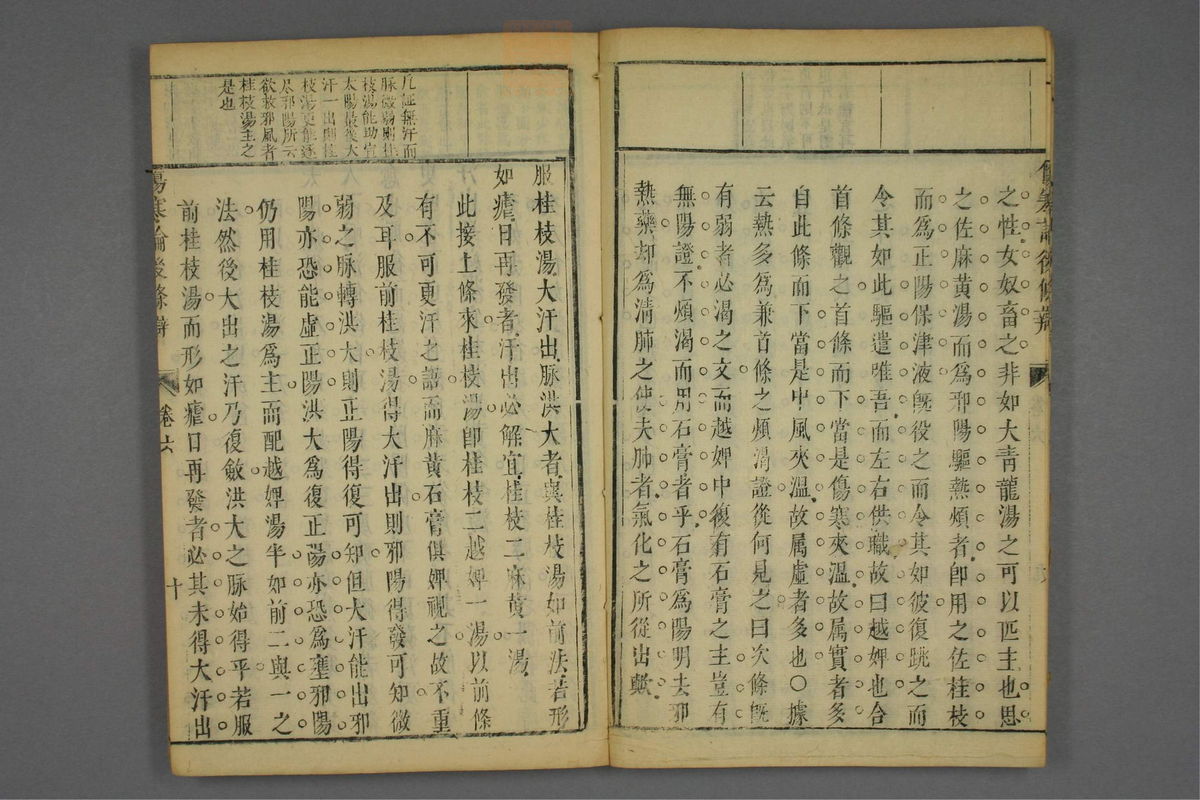 之性女奴畜之非如大青龍湯之可以匹主也思
之佐麻黃湯而爲邪陽驅熱煩者卽用之佐桂枝
而爲正陽保津液旣役之而令其如彼復跳之而
令其如此驅遣唯吾而左右供職故曰越婢也合
首條觀之首條而下當是傷寒夾溫故属實者多
自此條而下當是中風夾溫故属虛者多也○據
云熱多爲兼首條之煩渴證從何見之曰次條旣
有弱者必渴之文而越婢中復有石膏之主豈有
無陽證不煩渴而用石膏者乎石膏爲陽明去邪
熱藥却爲清肺之使夫肺者氣化之所從出歟
凡証無汗而
脉微弱則桂
枝湯能助宣
太陽最柴大
汗一出則桂
枝湯更能逐
尽邪陽所云
欲救邪風者
桂枝湯主之
是也
服桂枝湯大汗出脉洪大者與桂枝湯如前法若形
如瘧日再發者汗出必解宜桂枝二麻黃一湯
此接上條來桂枝湯卽桂枝二越婢一湯以前條
有不可更汗之語而麻黃石膏俱婢視之故不重
及耳服前桂枝湯得大汗出則邪陽得發可知微
弱之脉轉洪大則正陽得復可知但大汗能出邪
陽亦恐能虛正陽洪大爲復正陽亦恐爲壅邪陽
仍用桂枝湯爲主而配越婢湯半如前二與一之
法然後大出之汗乃復斂洪大之脉始得平若服
前桂枝湯而形如瘧日再發者必其未得大汗出
傷寒論後條辯
卷六
十